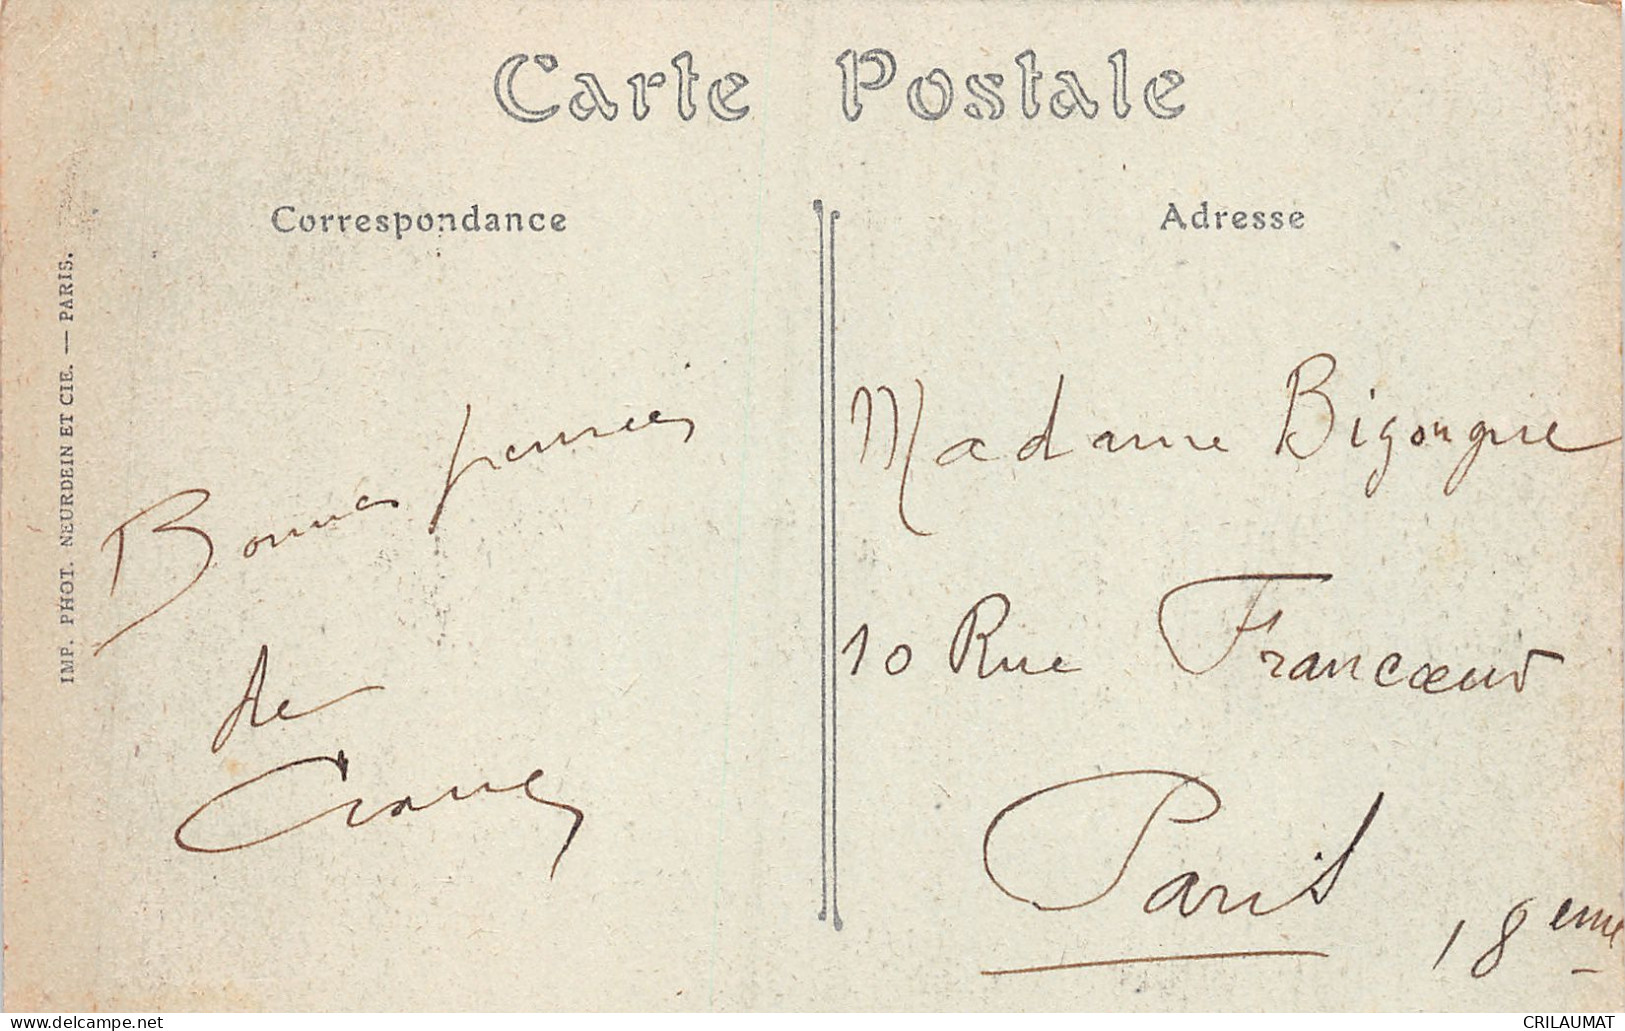 Carte Postale
Correspondance
Adresse
IMP. PHOT. NEURDEIN ET CIE. — PARIS.
Bonnes pensées
de
Madame Bigongne
10 Rue Francœur
Paris 18eme
CRILAUMAT